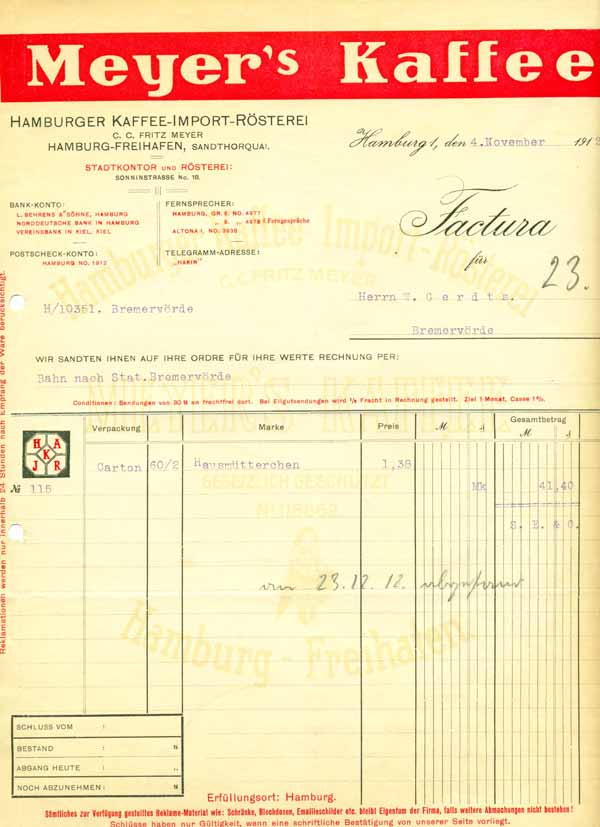 Meyer's Kaffee
HAMBURGER KAFFEE-IMPORT-RÖSTEREI
C. C. FRITZ MEYER
HAMBURG-FREIHAFEN, SANDTHORQUAI.
STADTKONTOR UND RÖSTEREI:
SONNINSTRASSE No. 18.
Hamburg 1, den 4. November 191
BANK-KONTO:
L. BEHRENS & SÖHNE, HAMBURG
NORDDEUTSCHE BANK IN HAMBURG
VEREINSBANK IN KIEL, KIEL
POSTSCHECK-KONTO:
HAMBURG NO. 1912
FERNSPRECHER:
HAMBURG, GR. 6. NO. 4977
" 6. " 4978 f. Ferngespräche
ALTONA I, NO. 3938
TELEGRAMM-ADRESSE:
"HAKIN"
Factura
für
23.
H/10351. Bremervörde
Herrn W. Gerdts.
Bremervörde
WIR SANDTEN IHNEN AUF IHRE ORDRE FÜR IHRE WERTE RECHNUNG PER:
Bahn nach Stat. Bremervörde
Conditionen: Sendungen von 30 ℔ an frachtfrei dort. Bei Eilgutsendungen wird ½ Fracht in Rechnung gestellt. Ziel 1 Monat, Casse 1%.
Verpackung Marke Preis M. ₰ Gesamtbetrag
M. ₰
H A
K
J R
Carton 60/2 Hausmütterchen 1,38
№ 115 Mk 41,40
S. E. & O.
GESETZLICH GESCHÜTZT
am 23.12.12. abgesandt
Hamburg - Freihafen.
SCHLUSS VOM :
BESTAND : ℔
ABGANG HEUTE : ℔
NOCH ABZUNEHMEN : ℔
Erfüllungsort: Hamburg.
Sämtliches zur Verfügung gestelltes Reklame-Material wie: Schränke, Blechdosen, Emailleschilder etc. bleibt Eigentum der Firma, falls weitere Abmachungen nicht bestehen!
Schlüsse haben nur Gültigkeit, wenn eine schriftliche Bestätigung von unserer Seite vorliegt.
Reklamationen werden nur innerhalb 24 Stunden nach Empfang der Ware berücksichtigt.